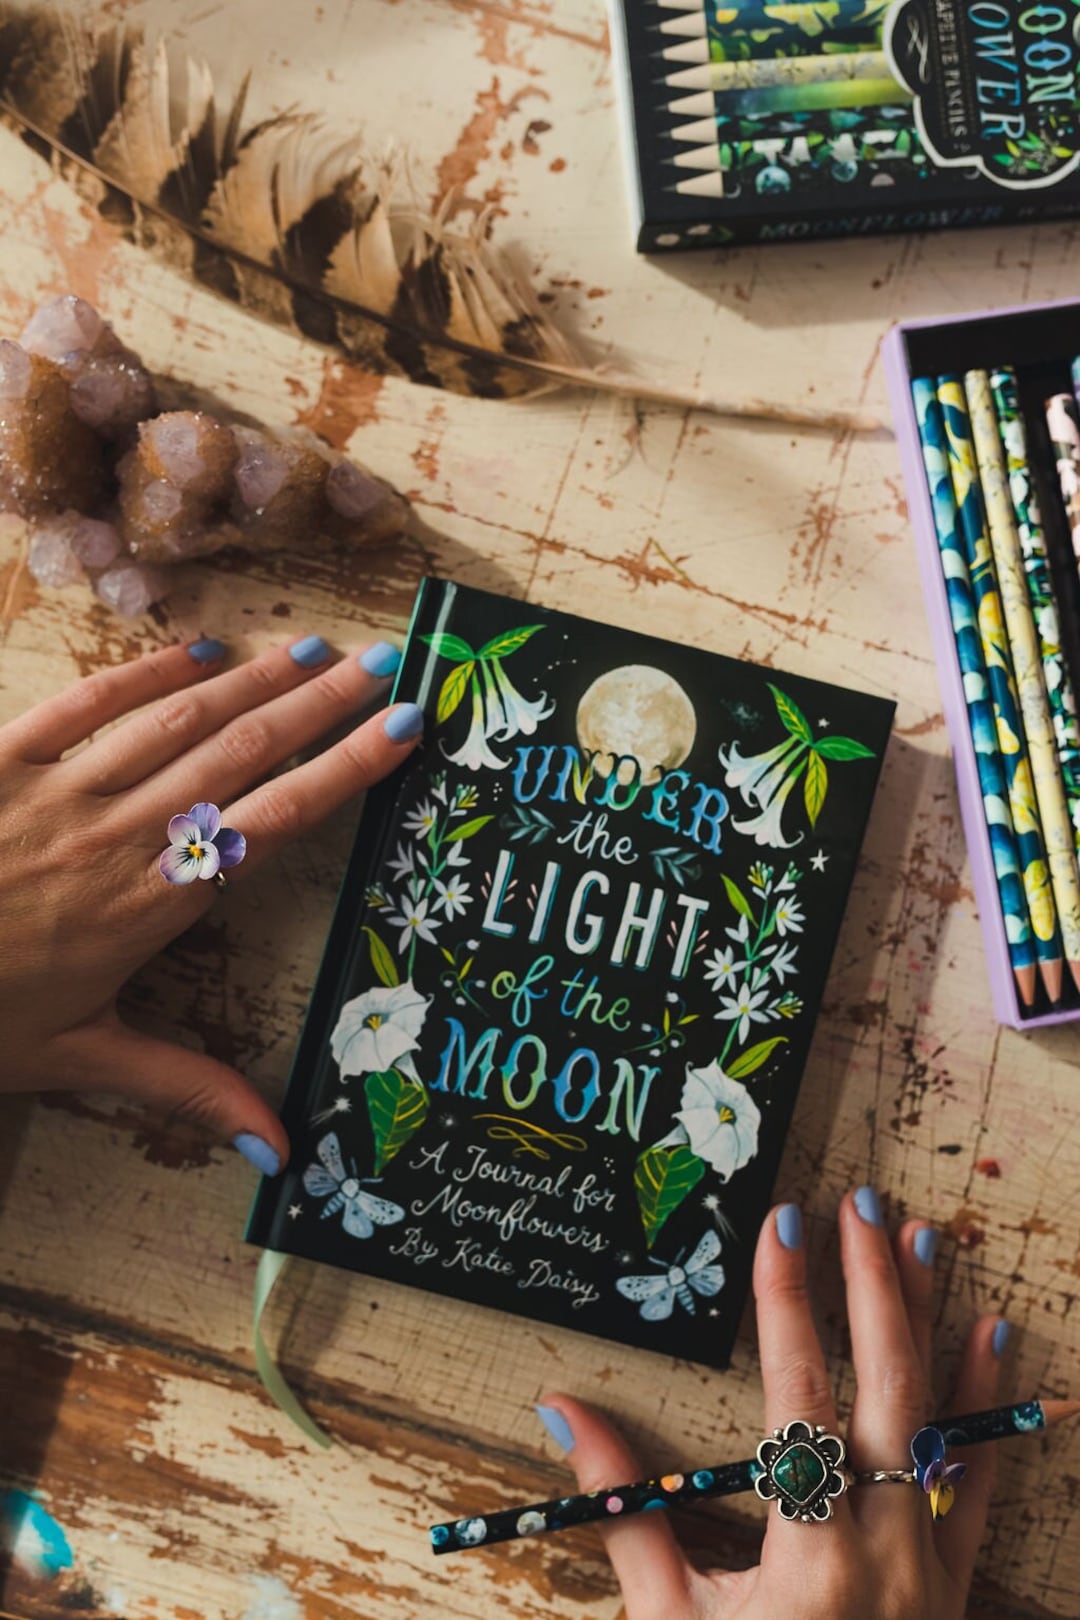 MOON
FLOWER
PENCILS
MOONFLOWER
UNDER
the
LIGHT
of the
MOON
A Journal for
Moonflowers
By Katie Daisy